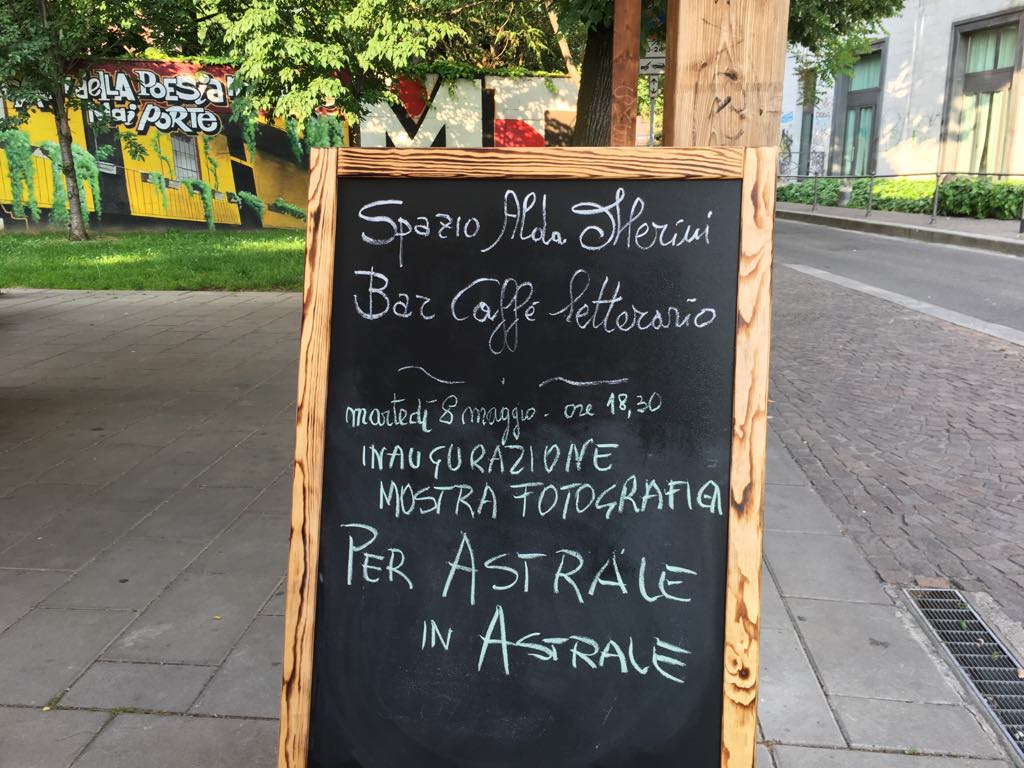 DELLA POESIA
PORTE
M
Spazio Alda Merini
Bar Caffé letterario
martedí 8 maggio - ore 18,30
INAUGURAZIONE
MOSTRA FOTOGRAFICA
PER ASTRALE
IN ASTRALE